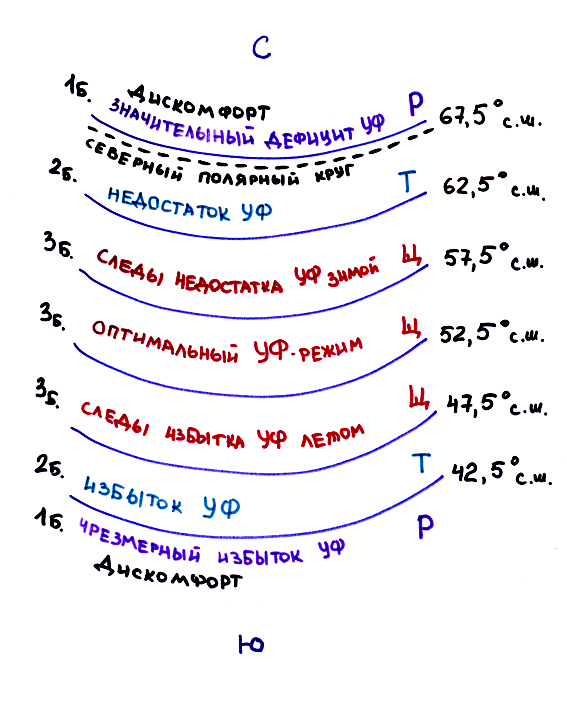 С
1б. Дискомфорт
ЗНАЧИТЕЛЬНЫЙ ДЕФИЦИТ УФ Р 67,5° с.ш.
СЕВЕРНЫЙ ПОЛЯРНЫЙ КРУГ
2б. НЕДОСТАТОК УФ Т 62,5° с.ш.
3б. СЛЕДЫ НЕДОСТАТКА УФ ЗИМОЙ Ц 57,5° с.ш.
3б. ОПТИМАЛЬНЫЙ УФ-РЕЖИМ Ц 52,5° с.ш.
3б. СЛЕДЫ ИЗБЫТКА УФ ЛЕТОМ Ц 47,5° с.ш.
2б. ИЗБЫТОК УФ Т 42,5° с.ш.
1б. ЧРЕЗМЕРНЫЙ ИЗБЫТОК УФ Р
Дискомфорт
Ю